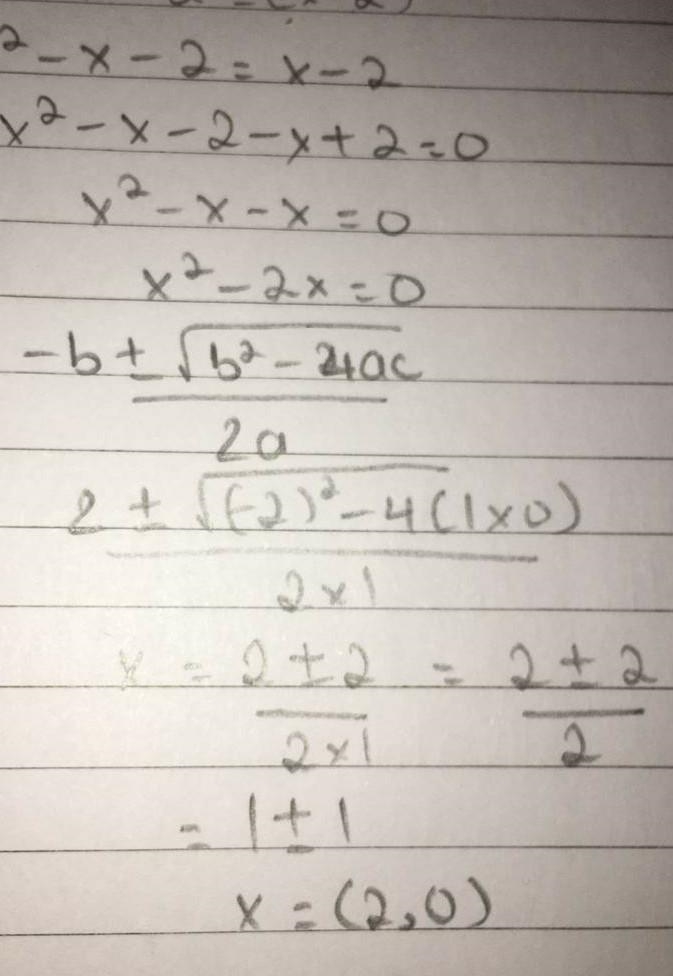 ² - x - 2 = x - 2
x² - x - 2 - x + 2 = 0
x² - x - x = 0
x² - 2x = 0
-b ± √b² - 4ac
2a
2 ± √(-2)² - 4(1×0)
2×1
x = 2 ± 2 = 2 ± 2
2×1 2
= 1 ± 1
x = (2,0)